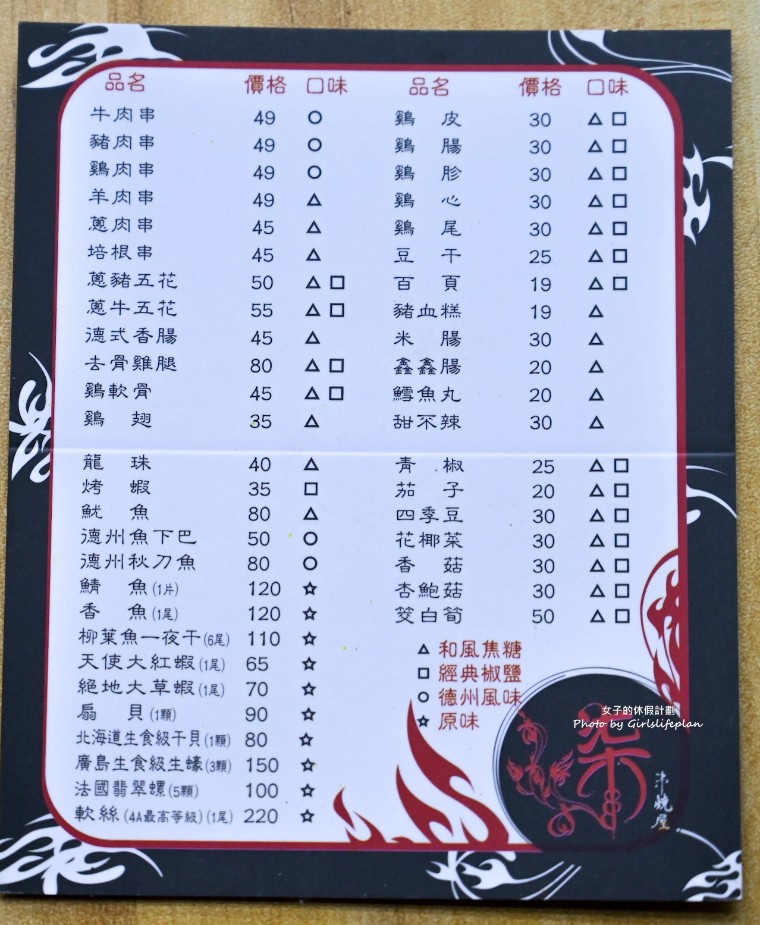 品名 價格 口味
牛肉串 49 ○
豬肉串 49 ○
鷄肉串 49 ○
羊肉串 49 △
蔥肉串 45 △
培根串 45 △
蔥豬五花 50 △ □
蔥牛五花 55 △ □
德式香腸 45 △
去骨雞腿 80 △ □
鷄軟骨 45 △ □
鷄 翅 35 △
龍 珠 40 △
烤 蝦 35 □
魷 魚 80 △
德州魚下巴 50 ○
德州秋刀魚 80 ○
鯖 魚(1片) 120 ☆
香 魚(1尾) 120 ☆
柳葉魚一夜干(6尾) 110 ☆
天使大紅蝦(1尾) 65 ☆
絕地大草蝦(1尾) 70 ☆
扇 貝(1顆) 90 ☆
北海道生食級干貝(1顆) 80 ☆
廣島生食級生蠔(3顆) 150 ☆
法國翡翠螺(5顆) 100 ☆
軟絲(4A最高等級)(1尾) 220 ☆
品名 價格 口味
鷄 皮 30 △ □
鷄 腸 30 △ □
鷄 胗 30 △ □
鷄 心 30 △ □
鷄 尾 30 △ □
豆 干 25 △ □
百 頁 19 △ □
豬血糕 19 △
米 腸 30 △
鑫鑫腸 20 △
鱈魚丸 20 △
甜不辣 30 △
青 椒 25 △ □
茄 子 20 △ □
四季豆 30 △ □
花椰菜 30 △ □
香 菇 30 △ □
杏鮑菇 30 △ □
筊白筍 50 △ □
△ 和風焦糖
□ 經典椒鹽
○ 德州風味
☆ 原味
女子的休假計劃
Photo by Girlslifeplan
柒
串燒屋